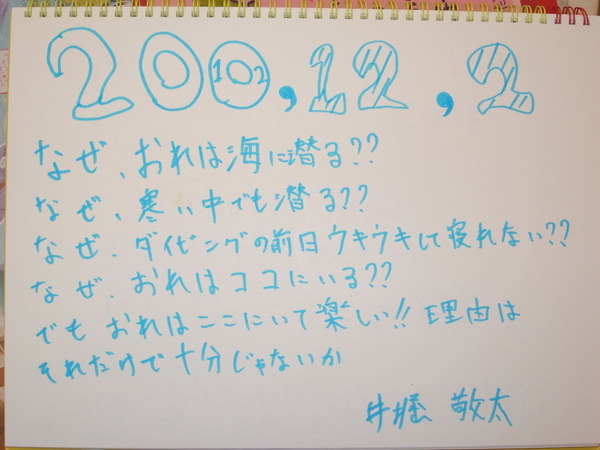 200102,12,2
なぜ、おれは海に潜る??
なぜ、寒い中でも潜る??
なぜ、ダイビングの前日ウキウキして寝れない??
なぜ、おれはココにいる??
でもおれはここにいて楽しい!!理由は
それだけで十分じゃないか
井堀 敬太